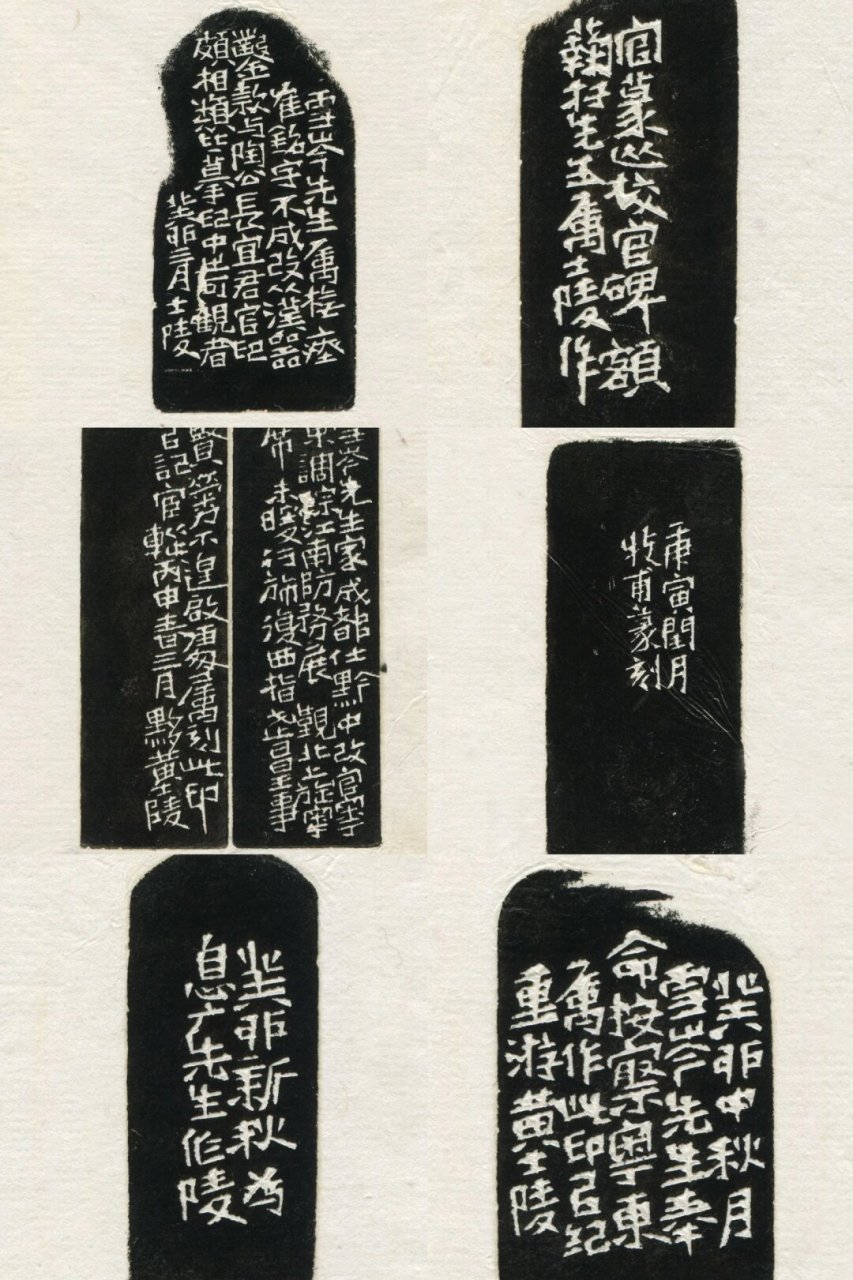 雪岑先生属橅瘞
隺銘字不成改从漢器
鑿款与陶公長宜君官印
頗相類摹印中觀者
癸卯三月士陵
官篆从校官碑額
先生属士陵作
雪岑先生家成都仕黔中改官粤
東調綜江南防務展覲北上旋粤
席未暖行旆復西指事
賢勞不遑啟處属刻此印
㠯記宦轍丙申春三月黟黄士陵
庚寅閏月
牧甫篆刻
癸卯新秋為
息广先生作陵
癸卯中秋月
雪岑先生奉
命按察粤東
属作此印㠯紀
重游黄士陵